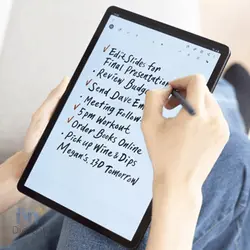 ✓ Edit Slides for
Final Presentation
• Review Budget
✓ Send Dave Em
• Meeting Follow
✓ 5pm Workout
✓ Order Books Online
• Pick up Wine & Dips
Megan's, 7:30 Tomorrow